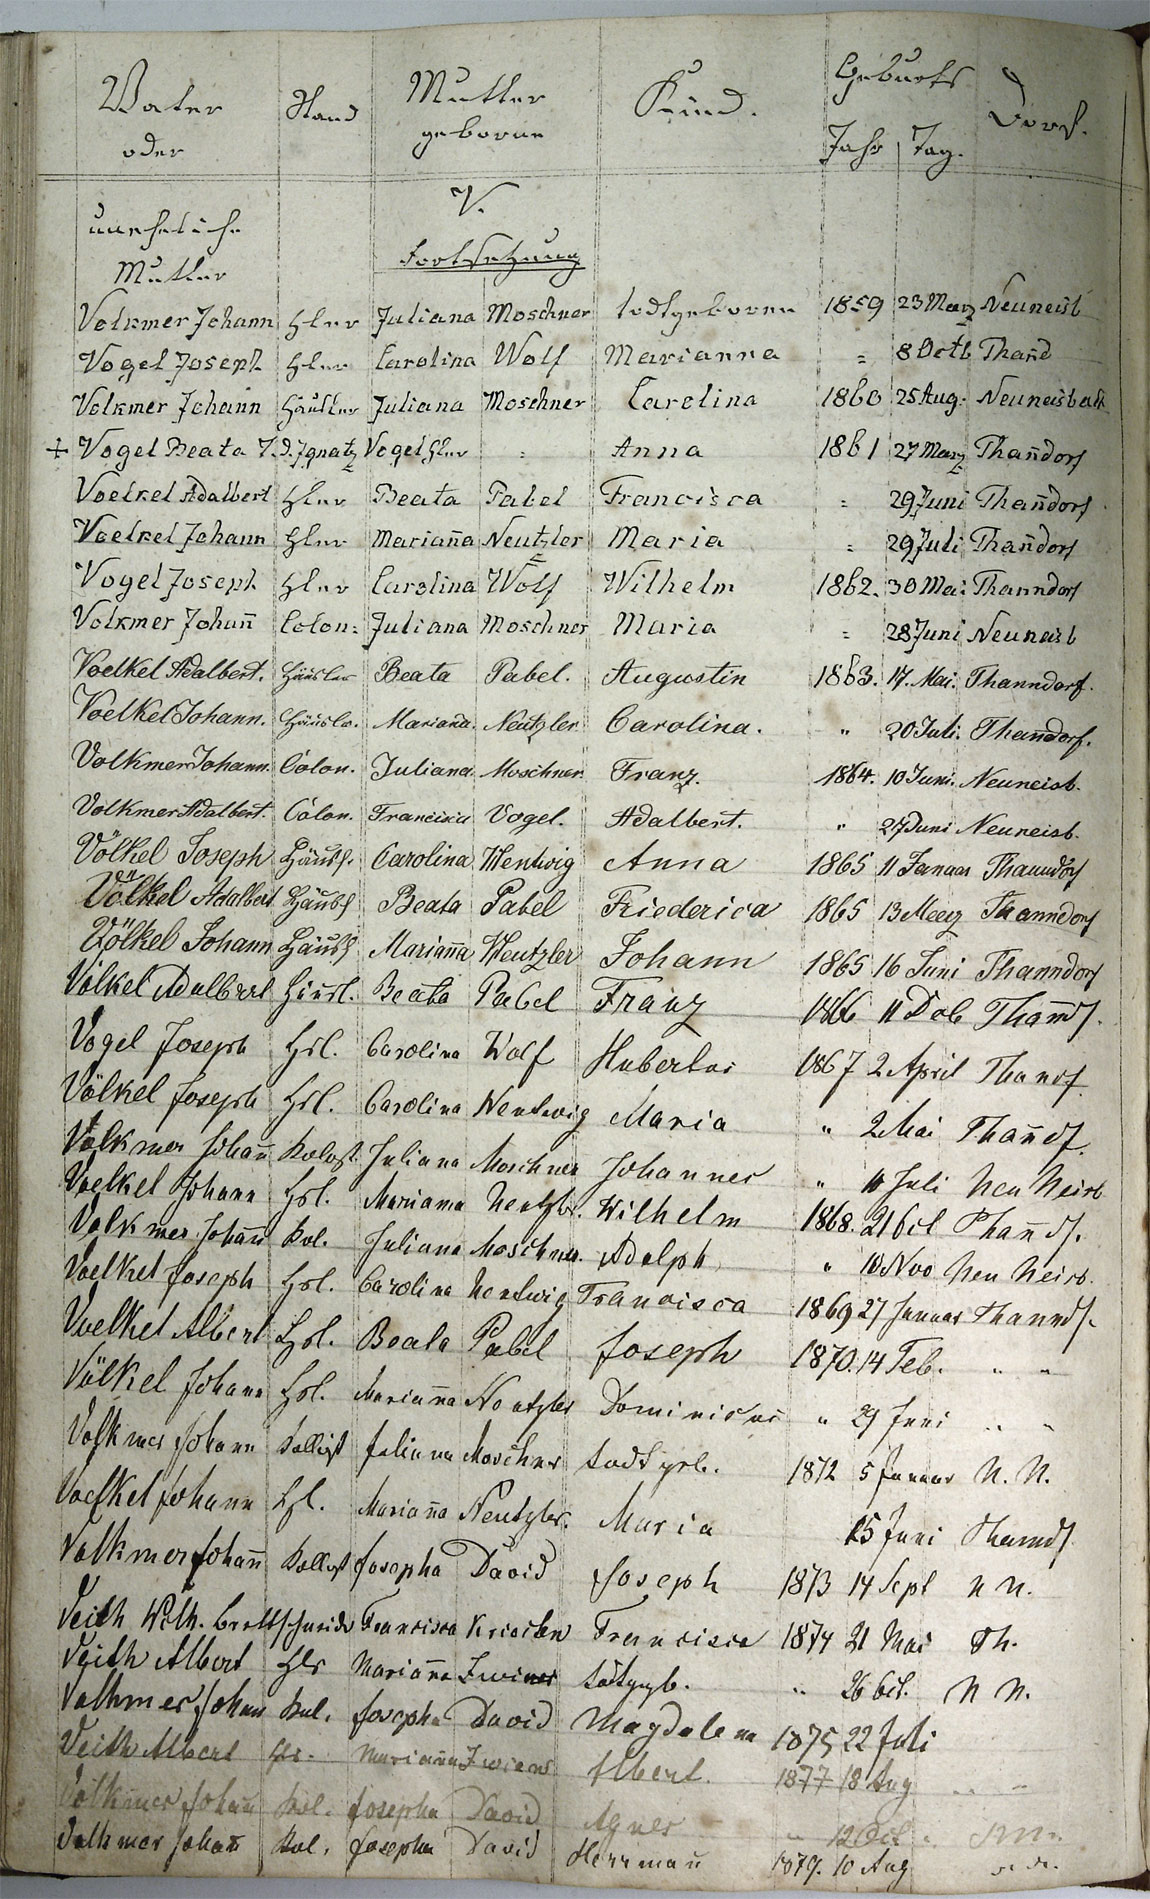 Vater Stand Mutter Kind. Geburts Dorf.
oder geborne Jahr Tag.
uneheliche V.
Mutter Fortsetzung
Volkmer Johann Hler Juliana Moschner todtgeboren 1859 23 Marz Neuneisb
Vogel Joseph Hler Carolina Wolf Marianna = 8 Octb Thand
Volkmer Johann Häusler Juliana Moschner Carolina 1860 25 Aug. Neuneisbach
+ Vogel Beata T. d. Ignatz Vogel Hler = Anna 1861 27 Marz Thanndorf
Voelkel Adalbert Hler Beata Pabel Francisca = 29 Juni Thanndorf
Voelkel Johann Hler Marianna Neutzler Maria = 29 Juli Thanndorf
Vogel Joseph Hler Carolina Wolf Wilhelm 1862. 30 Mai Thanndorf
Volkmer Johann Colon: Juliana Moschner Maria = 28 Juni Neuneisb
Voelkel Adalbert. Häusler Beata Pabel. Augustin 1863. 17. Mai. Thanndorf.
Voelkel Johann. Häusler. Mariana. Neutzler Carolina. " 20 Juli. Thanndorf.
Volkmer Johann. Colon. Juliana Moschner Franz. 1864. 10 Juni. Neuneisb.
Volkmer Adalbert. Colon. Francisca Vogel. Adalbert. " Juni Neuneisb.
Völkel Joseph Häusl. Carolina Hentwig Anna 1865 11 Januar Thanndorf
Völkel Adalbert Häusl Beata Pabel Friederica 1865 13 Meerz Thanndorf
Völkel Johann Häusl Marianna Neutzler Johann 1865 16 Juni Thanndorf
Völkel Adalbert Häusl. Beata Pabel Franz 1866 11 Thannd.
Vogel Joseph Hsl. Carolina Wolf Hubertus 1867 2 April Thandf
Völkel Joseph Hsl. Carolina Hentwig Maria " 2 Mai Thandf.
Volkmer Johann Kolost. Juliana Moschner Johannes " Juli Neu Neisb
Voelkel Johann Hsl. Marianna Neutzler. Wilhelm 1868. 21 Oct Thannd.
Volkmer Johann Kol. Juliana Moschner. Adolph " 18 Nov Neu Neisb.
Voelkel Joseph Hsl. Carolina Hentwig Francisca 1869 27 Januar Thannd.
Voelkel Albert Hsl. Beata Pabel Joseph 1870. 14 Feb. " "
Völkel Johann Hsl. Marianna Neutzler Dominicus " 29 Juni " "
Volkmer Johann Kollist Juliana Moschner todtgeb. 1872 5 Januar N. N.
Voelkel Johann Hsl. Marianna Neutzler. Maria 15 Juni Thannd
Volkmer Johann Kollist Josepha David Joseph 1873 14 Sept N N.
Veith Wilh. Brettschneider Francisca Francisca 1874 21 Mai Th.
Veith Albert Hlr Marianna todtgeb. " 26 Oct. N N.
Volkmer Johann Kol. Josepha David Magdalena 1875 22 Juli
Veith Albert Hlr. Marianna Albert. 1877 18 Aug " "
Volkmer Johann Kol. Josepha David Agnes " 12 Oct.
Volkmer Johann Kol. Josepha David Herrmann 1879. 10 Aug